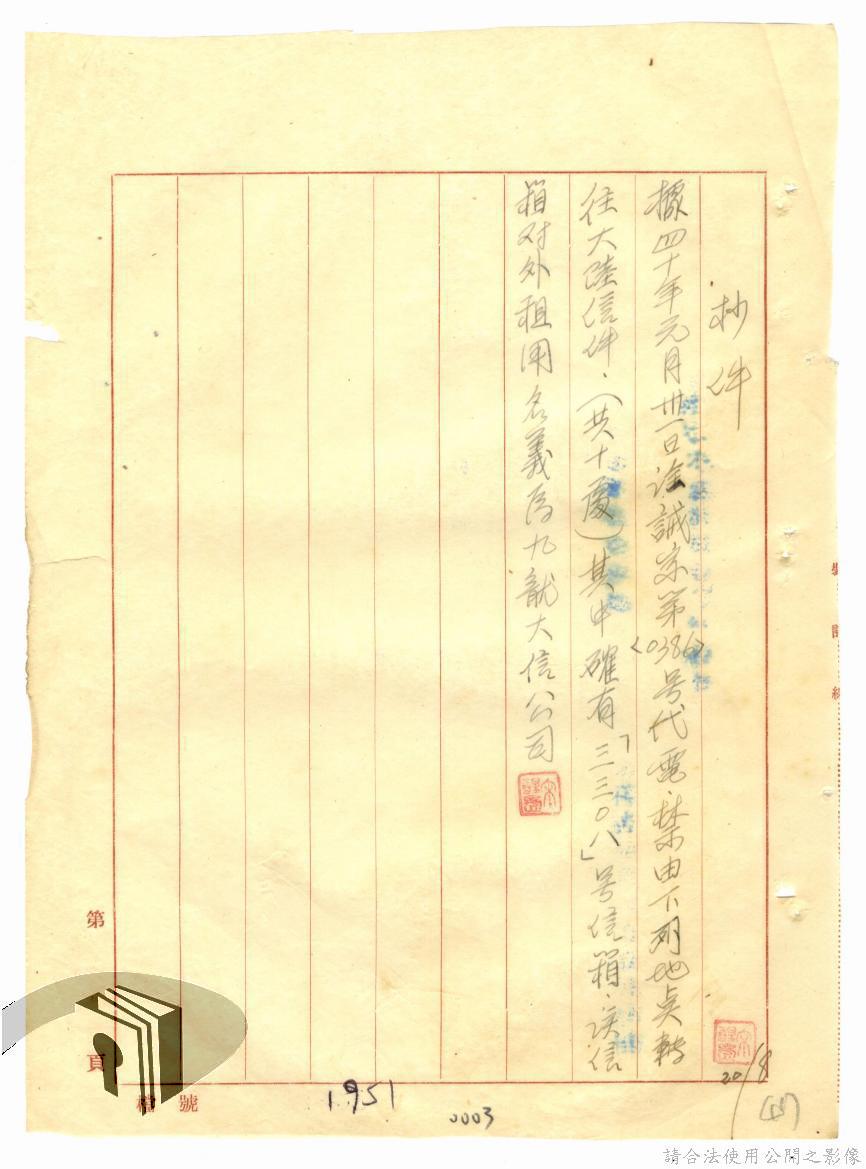 抄件
據四十年元月卅一日詮誠京第<0386>号代電、禁由下列地点轉
往大陸信件、(共十處)其中確有「三三〇八」号信箱、该信
箱对外租用名義为九龍大信公司
20/8
第
頁
檔號
1951
0003
裝
訂
線
請合法使用公開之影像